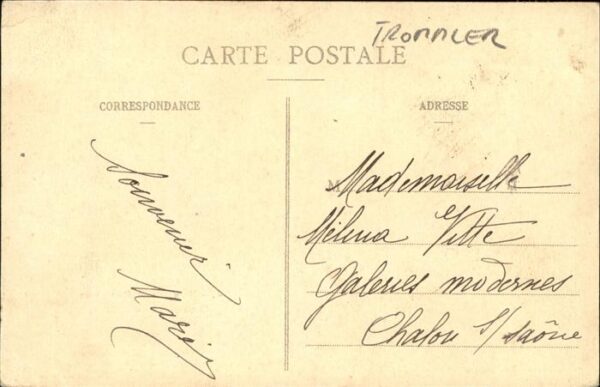 TROMMLER
CARTE POSTALE
CORRESPONDANCE
ADRESSE
Souvenir
Marie
M
Mademoiselle
Mélina Vitte
Galeries modernes
Chalon S/ Saône